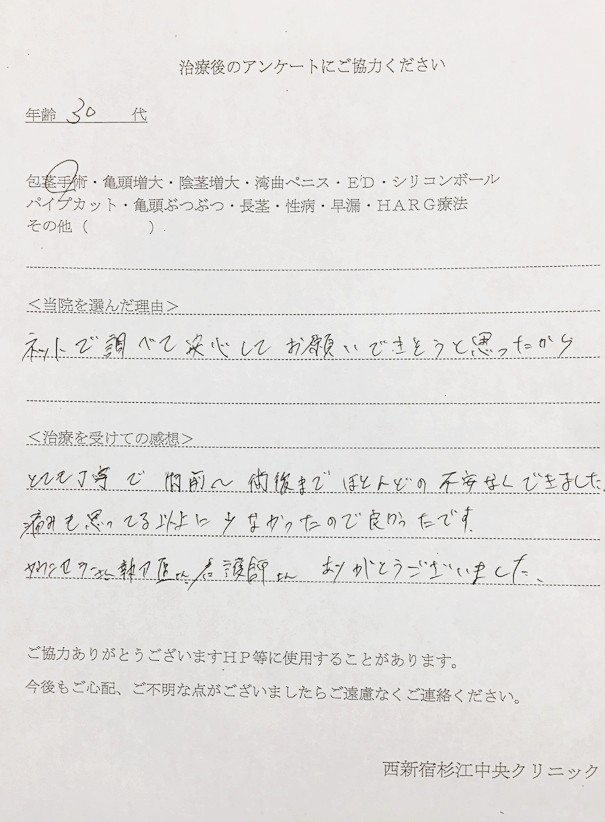 治療後のアンケートにご協力ください
年齢 30 代
包茎手術・亀頭増大・陰茎増大・湾曲ペニス・ED・シリコンボール
パイプカット・亀頭ぶつぶつ・長茎・性病・早漏・HARG療法
その他( )
<当院を選んだ理由>
ネットで調べて安心してお願いできそうと思ったから
<治療を受けての感想>
とても丁寧で 術前〜術後までほとんどの不安なくできました
痛みも思ってる以上に少なかったので良かったです。
カウンセラーさん執刀医さん看護師さん ありがとうございました。
ご協力ありがとうございますHP等に使用することがあります。
今後もご心配、ご不明な点がございましたらご遠慮なくご連絡ください。
西新宿杉江中央クリニック